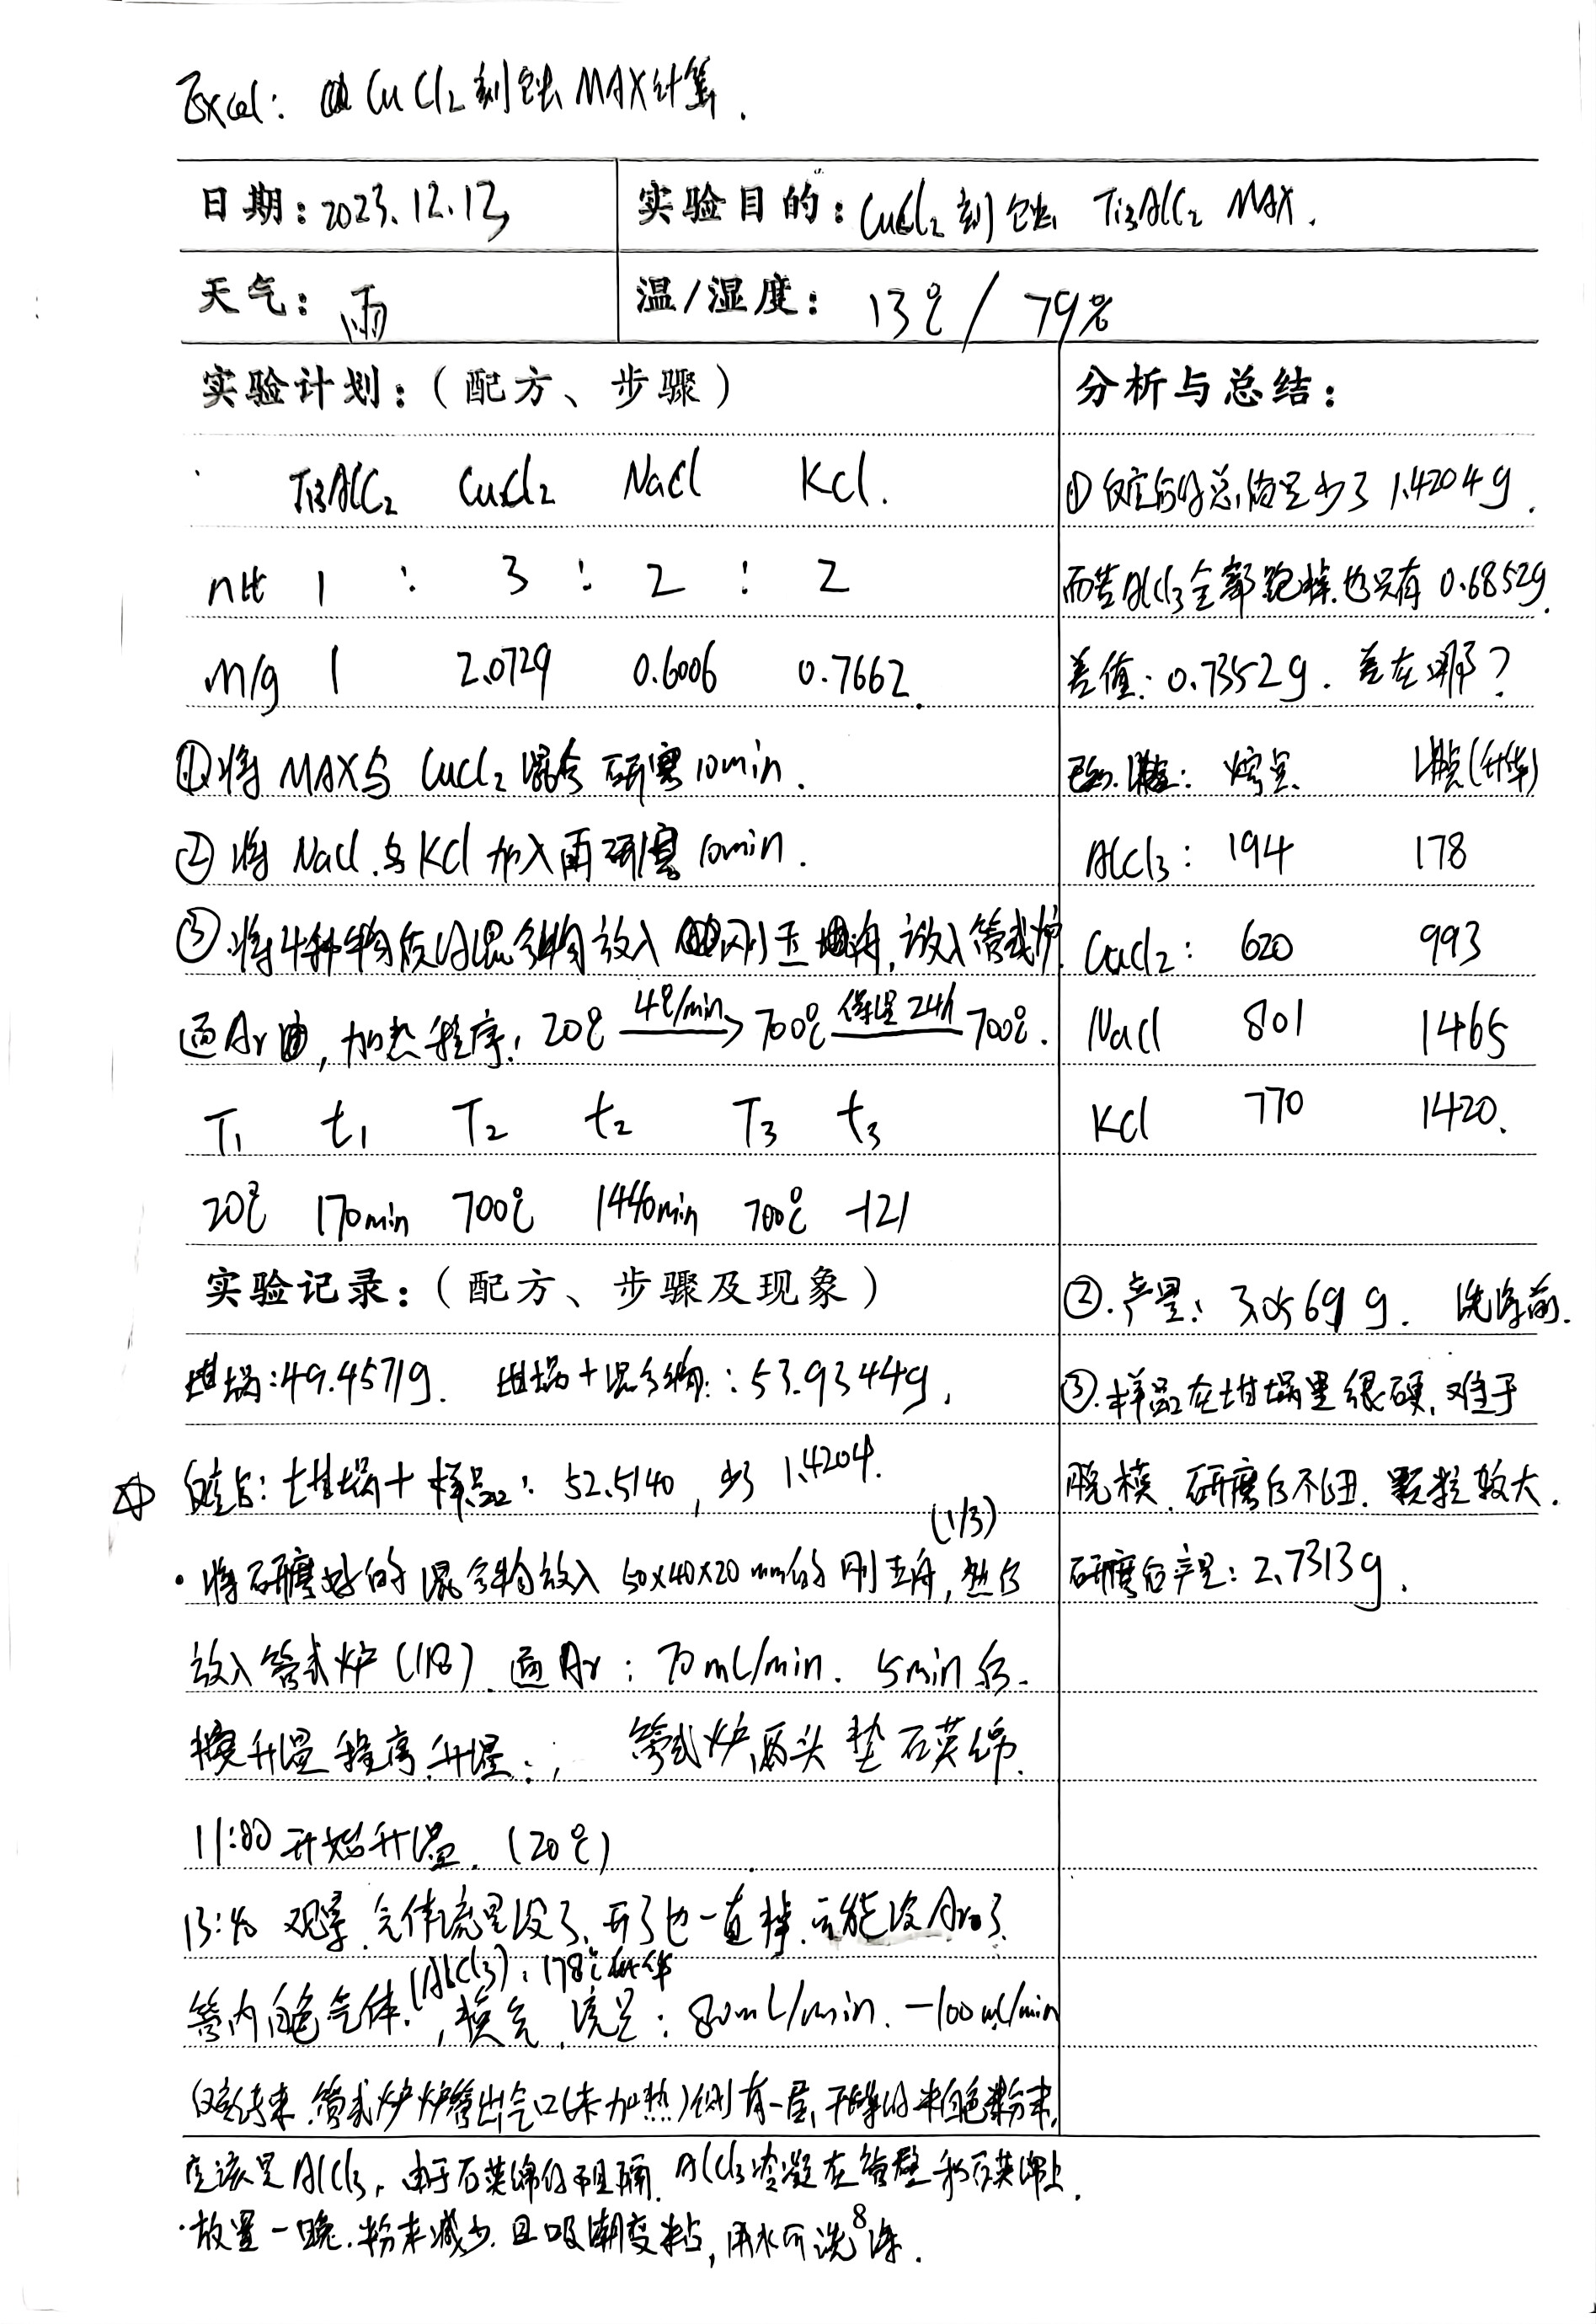 Excel: CuCl2刻蚀MAX计算.
日期: 2023.12.13
实验目的: CuCl2刻蚀 Ti3AlC2 MAX.
天气: 雨
温/湿度: 13℃ / 79%
实验计划:(配方、步骤)
Ti3AlC2 CuCl2 NaCl KCl.
n比 1 : 3 : 2 : 2
m/g 1 2.0729 0.6006 0.7662.
①将MAX与CuCl2混合研磨10min.
②将NaCl与KCl加入再研磨10min.
③将4种物质的混合物放入刚玉坩舟,放入管式炉.
通Ar, 加热程序: 20℃ 4℃/min→ 700℃ 保温24h 700℃.
T1 t1 T2 t2 T3 t3
20℃ 170min 700℃ 1440min 700℃ -121
实验记录:(配方、步骤及现象)
坩埚:49.4571g. 坩埚+混合物: 53.9344g.
反应后: 坩埚+样品: 52.5140, 少了1.4204.
(1/3)
·将研磨好的混合物放入50x40x20mm的刚玉舟, 然后
放入管式炉(118). 通Ar: 70mL/min. 5min后.
按升温程序升温; 管式炉两头垫石英绵.
11:00开始升温. (20℃)
13:40 观察气体流量没了,开了也一直掉.可能没Ar了.
(AlCl3): 178℃升华
管内白色气体, 换气, 流量: 80mL/min. -100mL/min
反应结束.管式炉炉管出气口(未加热)侧有一层干燥的米白色粉末,
应该是AlCl3, 由于石英绵的阻隔. AlCl3冷凝在管壁和石英绵上.
·放置一晚.粉末减少.且吸潮变粘, 用水可洗净.
8
分析与总结:
①反应后的总质量少了1.4204g.
而若AlCl3全部跑掉.也只有0.6852g.
差值: 0.7352g. 差在哪?
熔点 沸点(升华)
AlCl3: 194 178
CuCl2: 620 993
NaCl 801 1465
KCl 770 1420.
②.产量: 3.0569g. 洗涤前.
③.样品在坩埚里很硬,难于
脱模.研磨后不细.颗粒较大.
研磨后产量: 2.7313g.